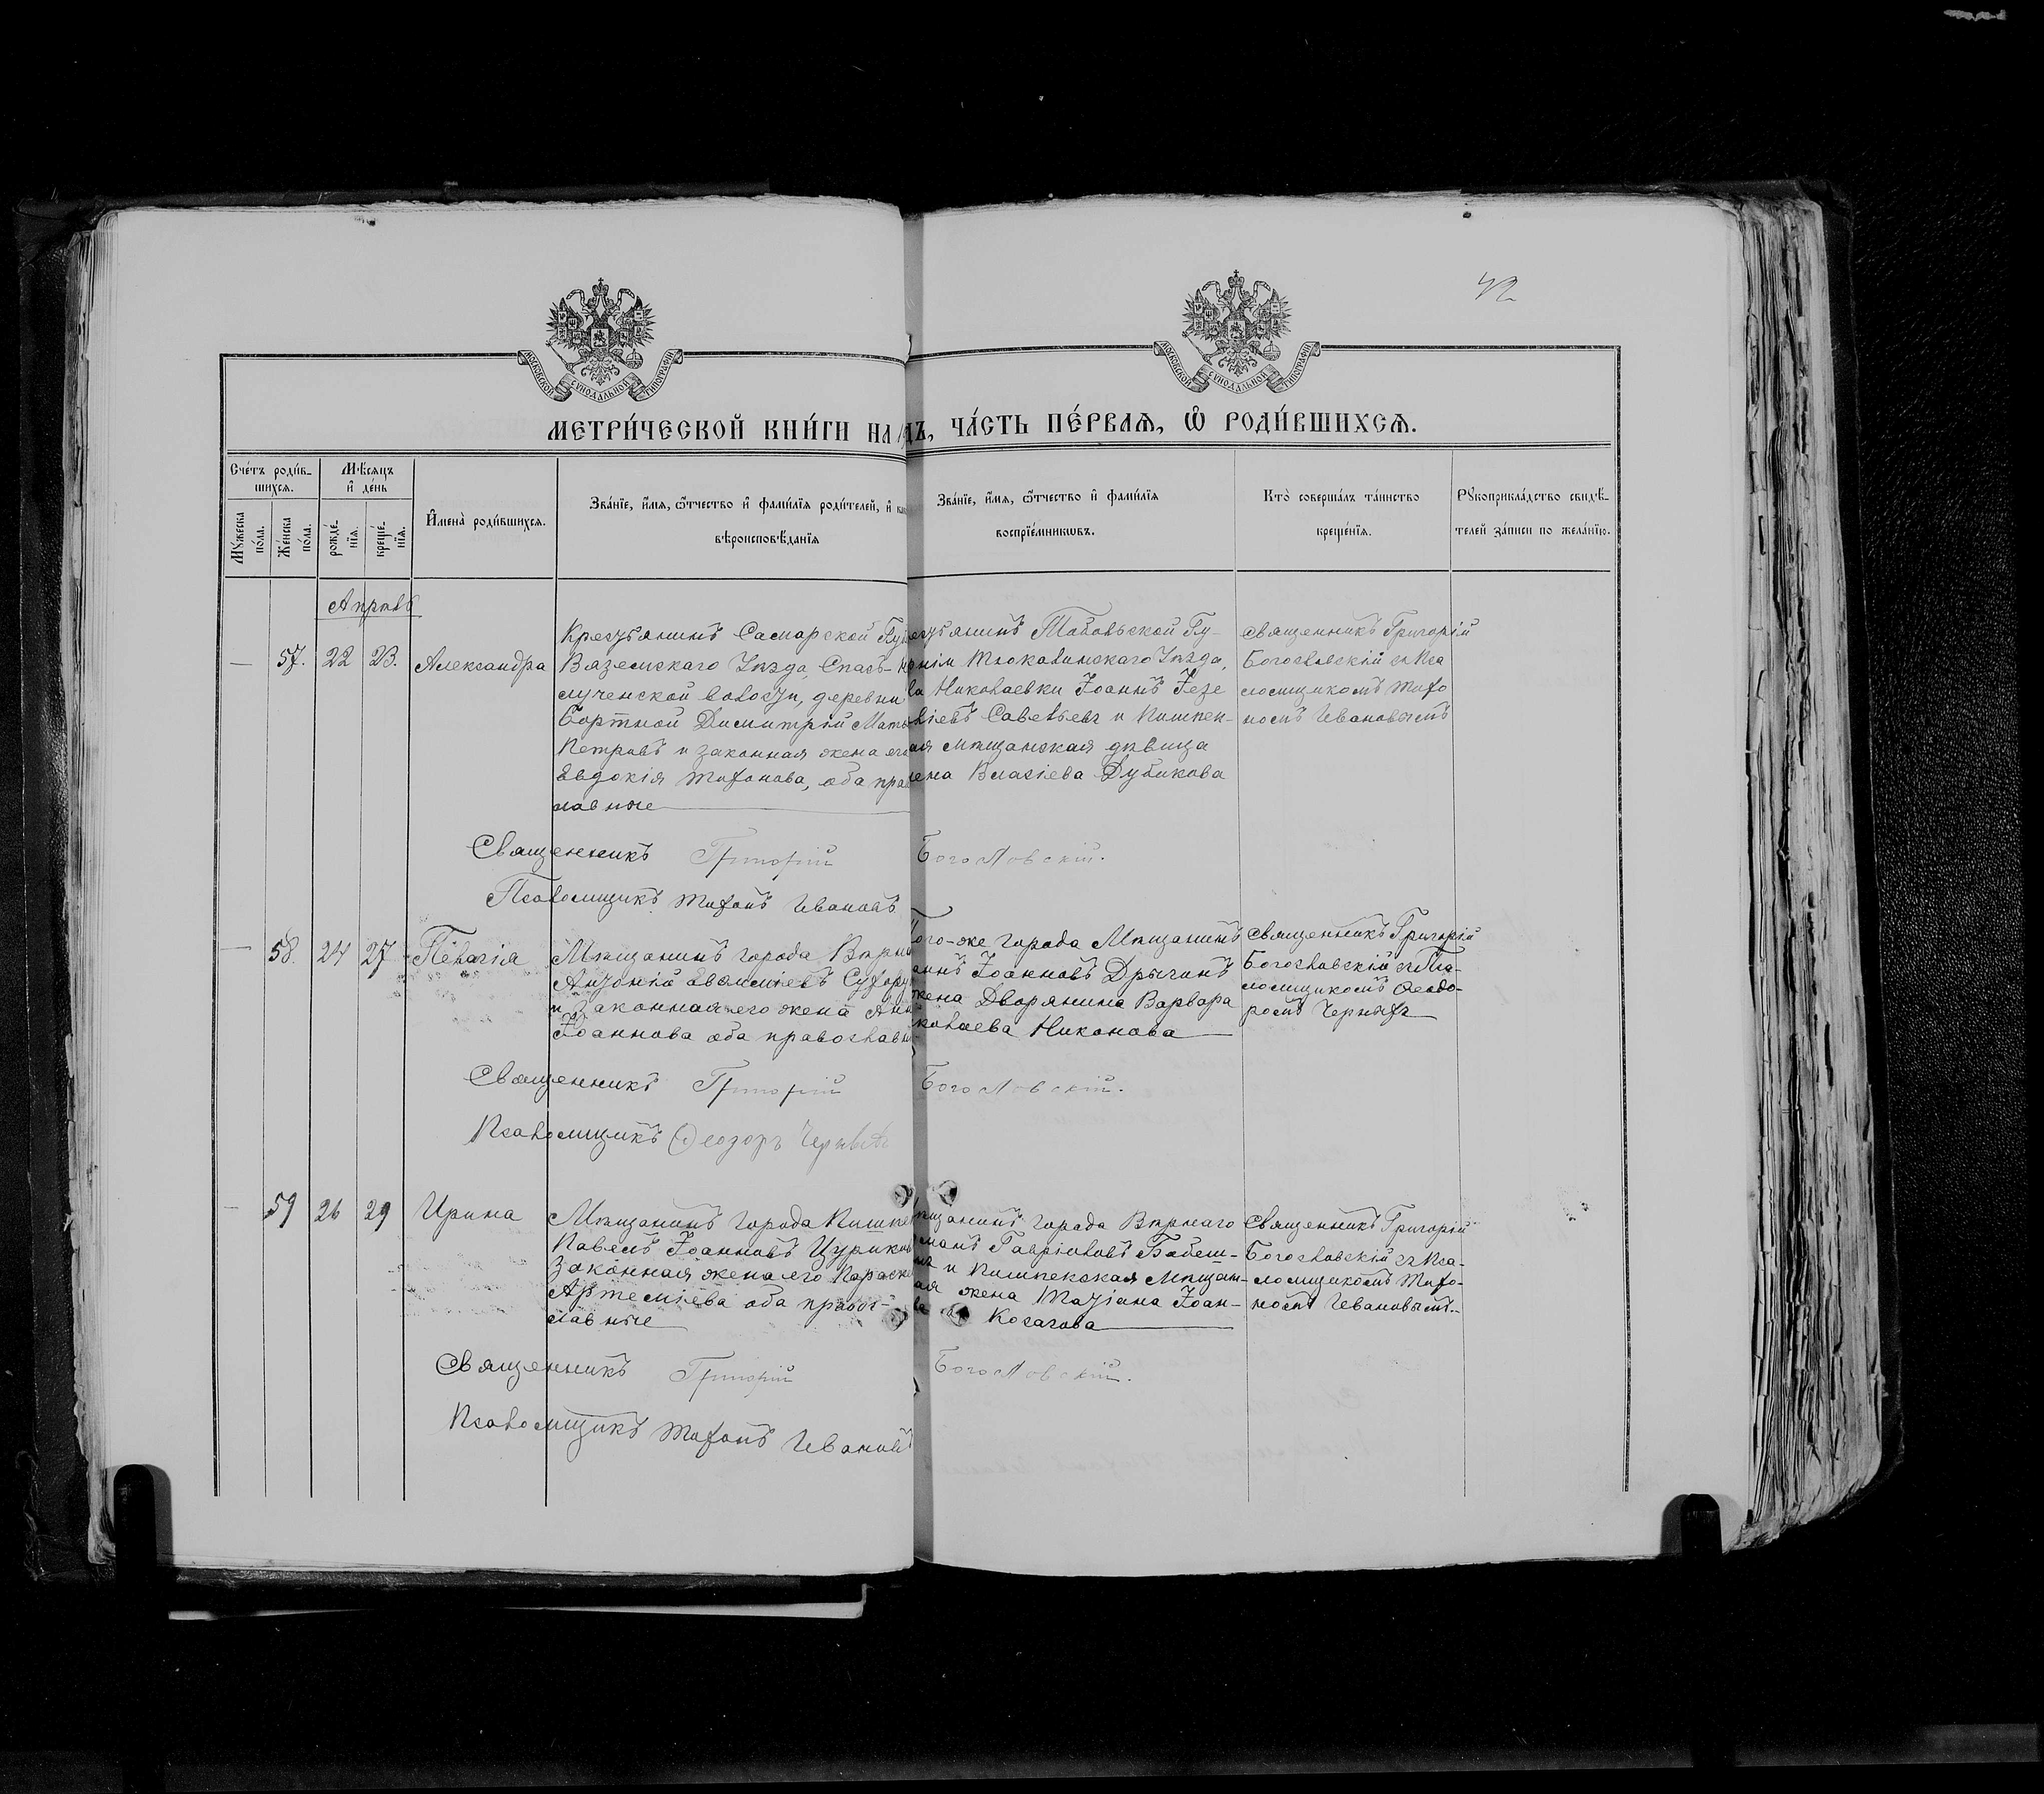 42
МОСКОВСКОЙ СѴНОДАЛЬНОЙ ТИПОГРАФІИ
МОСКОВСКОЙ СѴНОДАЛЬНОЙ ТИПОГРАФІИ
МЕТРИ́ЧЕСКОЙ КНИ́ГИ НА
ДЪ, ЧА́СТЬ ПЕ́РВАЯ, Ѡ РОДИ́ВШИХСЯ.
Сче́тъ роди́в-
шихся.
Мѣ́сяцъ
и҆ де́нь
Мꙋ́жеска
по́ла.
Же́нска
по́ла.
рожде́-
нїя.
креще́-
нїя.
И҆мена̀ роди́вшихся.
Зва́нїе, и҆́мя, ѻ҆́тчество и҆ фами́лїя роди́телей, и҆
вѣроисповѣ́данїя
Зва́нїе, и҆́мя, ѻ҆́тчество и҆ фами́лїя
воспрїе́мникѡвъ.
Кто̀ соверша́лъ та́инство
креще́нїя.
Рꙋкоприкла́дство свидѣ́-
телей за́писи по жела́нїю.
Апрѣль
— 57. 22 23. Александра
Крестьянинъ Самарской Гу
Вяземскаго Уѣзда, Спасъ-
лученской волости, деревни
Бортной Димитрій Мат
Петровъ и законная жена его
Евдокія Тихонова, оба прав
лавные
естьянинъ Тобольской Гу-
ніи Тюкалинскаго Уѣзда,
Николаевки Іоаннъ Іезе
кіевъ Савельевъ и Пишпек-
ая мѣщанская дѣвица
лена Власіева Дубикова
священникъ Григорій
Богословскій съ Пса
ломщикомъ Тихо
номъ Ивановымъ
Священникъ Григорій Богословскій.
Псаломщикъ Тихонъ Ивановъ
— 58. 24 27 Пелагія
Мѣщанинъ города Вѣрна
Антоній Евфиміевъ Сухору
и законная его жена Анн
Іоаннова оба православн
ого-же города Мѣщанинъ
Іоанновъ Дрыгинъ
жена Дворянина Варвара
колаева Никонова
священникъ Григорій
Богословскій съ Пса-
ломщикомъ Ѳеодо-
ромъ Чернявъ
Священникъ Григорій Богословскій.
Псаломщикъ Ѳеодоръ
— 59 26 29 Ирина
Мѣщанинъ города Пишпе
Павелъ Іоанновъ Цурикъ
Законная жена его Параске
Артеміева оба правос-
лавные
ѣщанинъ города Вѣрнаго
манъ Гавріиловъ Бабеш-
и Пишпекская Мѣщан-
ая жена Татіана Іоан-
ва Косагова
священникъ Григорій
Богословскій съ Пса-
ломщикомъ Тихо-
номъ Ивановымъ.
Священникъ Григорій Богословскій.
Псаломщикъ Тихонъ Ивановъ